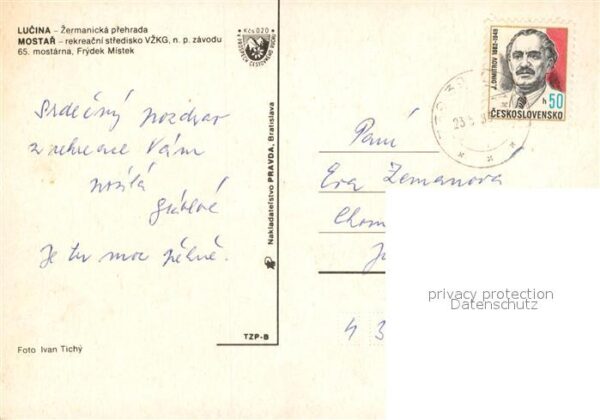 LUČINA – Žermanická přehrada
MOSTAŘ – rekreační středisko VŽKG, n. p. závodu
65. mostárna, Frýdek Místek
Kčs 0,20
Srdečný pozdrav
z rekreace Vám
posílá
Je tu moc pěkně.
Foto Ivan Tichý
Nakladatelství PRAVDA, Bratislava
TZP-B
J. DIMITROV 1882-1949
h 50
ČESKOSLOVENSKO
23
Paní
Eva Zemanová
Chom
4 3
privacy protection
Datenschutz